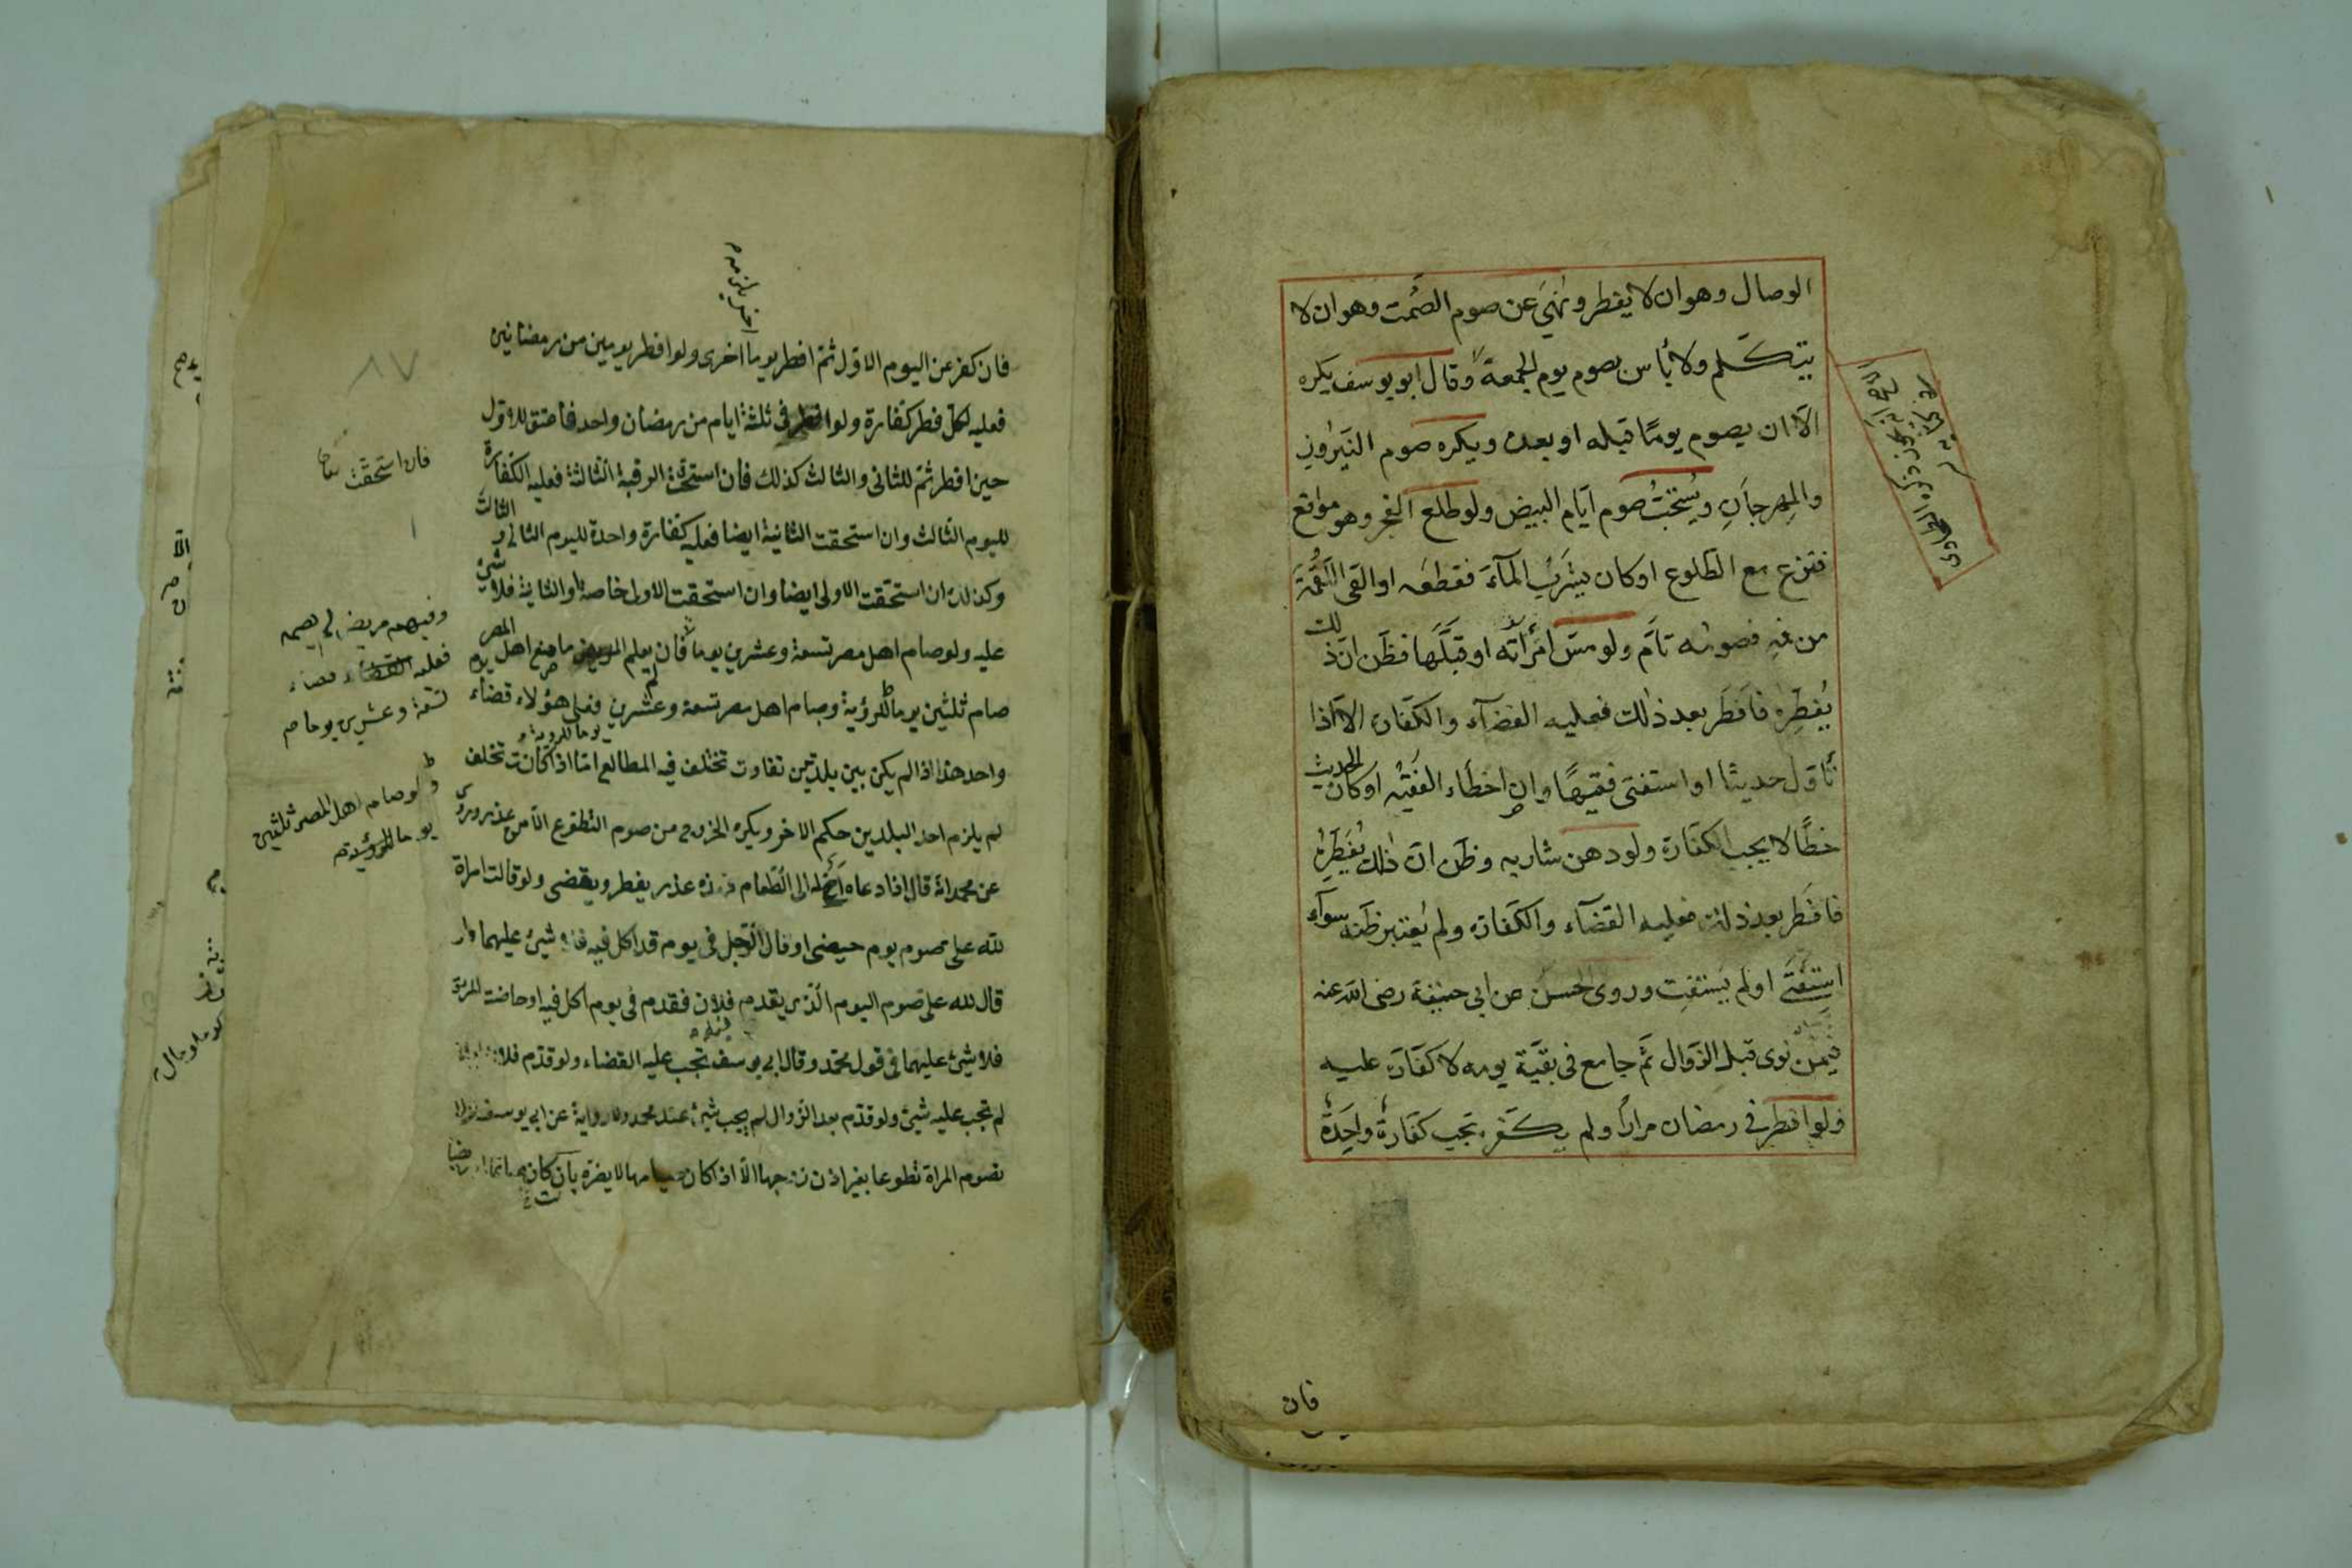 الوصال وهو ان لا يفطر ونُهِيَ عن صوم الصَمت وهو ان لا
يتكلم ولا بأس بصوم يوم الجمعة وقال ابو يوسف يكره
الّا ان يصوم يومًا قبله او بعده ويكره صوم النَيروز
والمِهرجانِ ويُستحَبّ صوم ايّام البيض ولو طلع الفجر وهو مواقع
فنزع مع الطلوع او كان يشرَبُ المآءَ فقطعه او القى اللُقمَةَ
من فيه فصومُه تامّ ولو مسّ امرَأته او قبّلها فظنّ انّ ذلك
يُفطِرهُ فافطَر بعد ذٰلك فعليه القضآء والكفّارة الّا اذا
تأوّل حديثا او استفتى فقيهًا وان اخطاء الفقيه او كان الحديث
خطًا لا يجب الكفّارة ولو دهن شاربه وظنّ انّ ذٰلك يُفَطِرهُ
فافطَر بعد ذلك فعليه القضآء والكفّارة ولم يُعتبر ظنّه سوآء
استَفتَى او لم يَستَفتِ وروى الحسن عن ابى حنيفة رضى الله عنه
فيمَن نوى قبل الزوال ثمّ جامع فى بقيّة يومه لا كفّارة عليه
ولو افطر فى رمضان مرارًا ولم يكفّر تجب كفّارةٌ واحِدَةٌ
فان
فان كفّر عن اليوم الاوّل ثمّ افطر يوما اخرى ولو افطر يومين من رمضانين
فعليه لكلّ فطر كفّارة ولو افطر فى ثلثة ايام من رمضان واحد فاعتق للاوّل
حين افطر ثمّ للثانى والثالث كذلك فان استحقت الرقبة الثالثة فعليه الكفّارة
لليوم الثالث وان استحقت الثانية ايضا فعليه كفّارة واحدة لليوم الثانى و الثالث
وكذلك ان استحقت الاولى ايضا وان استحقت الاولى خاصة او الثانية فلا شئ
عليه ولو صام اهل مصر تسعة وعشرين يوما فان لم يعلم المريض ما صنع اهل المصر
صام ثلثين يوما للرؤية وصام اهل مصر تسعة وعشرين فعلى هؤلاء قضاء يوم
واحد هذا اذا لم يكن بين بلدتين تفاوت تختلف فيه المطالع امّا اذا كانت تختلف
لم يلزم احد البلدين حكم الاخر ويكره الخروج من صوم التطوع الّا من عذر وروى
عن محمد انه قال اذا دعاه اخ له الى الطعام فهذه عذر يفطر ويقضى ولو قالت امراة
لله على صوم يوم حيضى او قال الرّجل فى يوم قد اكل فيه فلا شئ عليهما ولو
قال لله علىّ صوم اليوم الّذى يقدم فلان فقدم فى يوم اكل فيه او حاضت المرءة
فلا شئ عليهما فى قول محمّد وقال ابى يوسف تجب عليه القضاء ولو قدّم فلان
لم تجب عليه شئ ولو قدّم بعد الزوال لم يجب شئ عند محمد ولا رواية عن ابى يوسف
تصوم المراة تطوعا بغير اذن زوجها الّا اذا كان صيامها لا يضره بان كان
فان استحقّت
وفيهم مريض لم يصمه
فعليه قضاء
تسعة وعشرين يوما
ولو صام اهل المصر ثلثين
يوما للرؤية